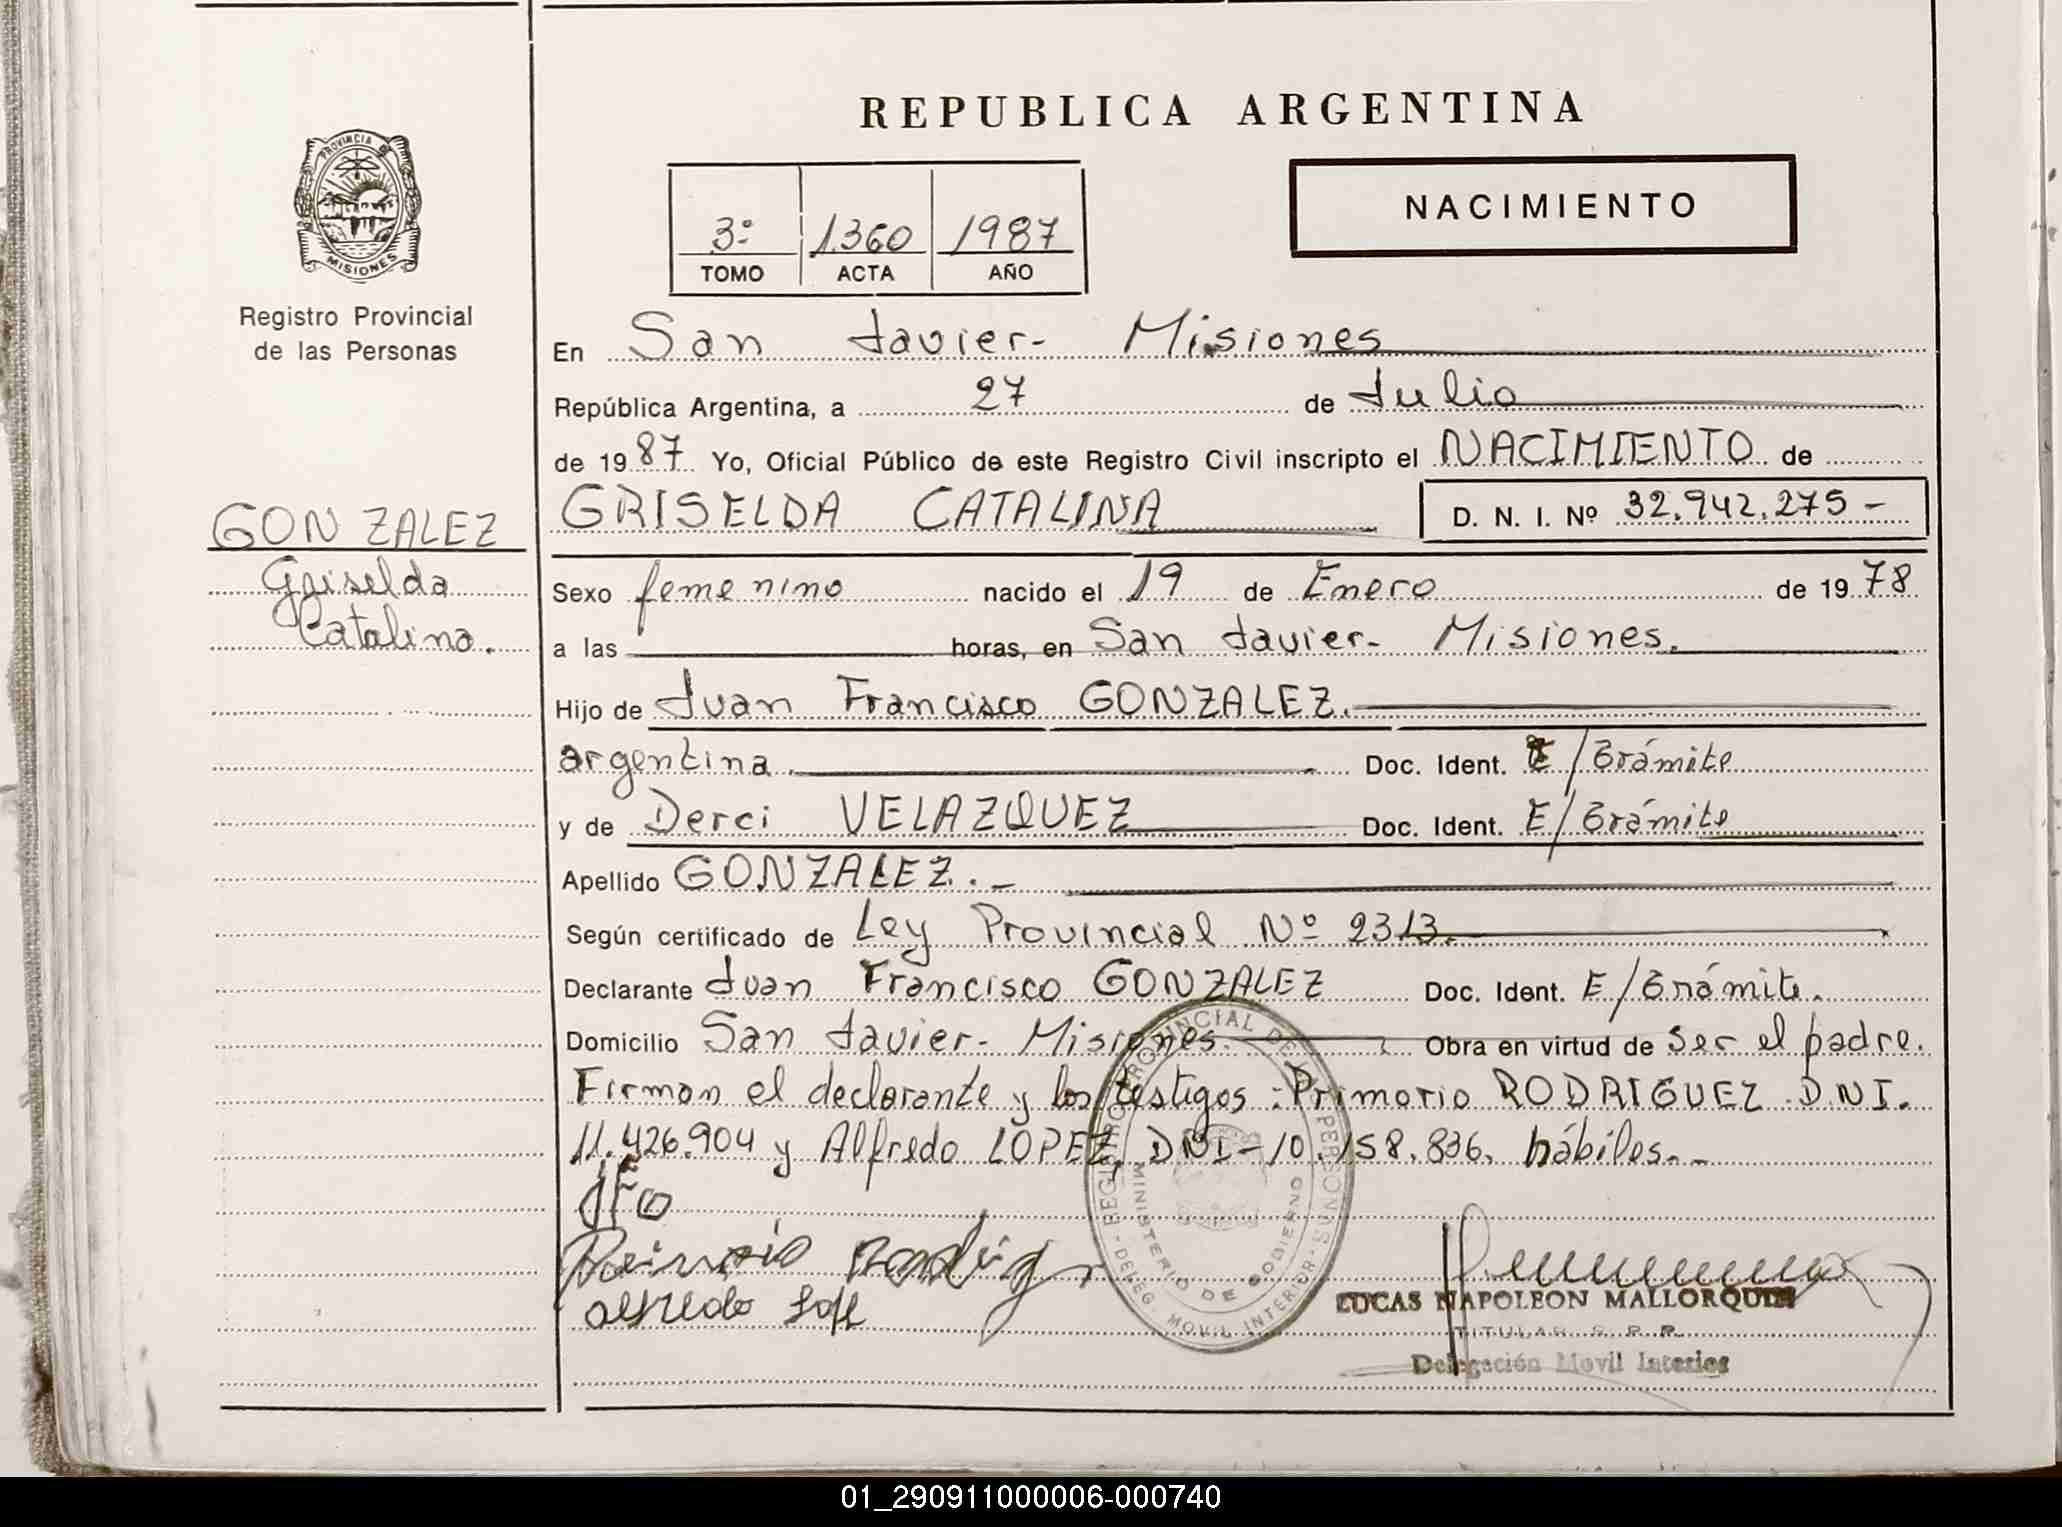 REPUBLICA ARGENTINA
PROVINCIA DE
MISIONES
Registro Provincial
de las Personas
3º 1360 1987
TOMO ACTA AÑO
NACIMIENTO
En San Javier- Misiones
República Argentina, a 27 de Julio
de 1987 Yo, Oficial Público de este Registro Civil inscripto el NACIMIENTO de
GRISELDA CATALINA D. N. I. Nº 32.942.275-
GONZALEZ
Griselda
Catalina.
Sexo femenino nacido el 19 de Enero de 1978
a las horas, en San Javier- Misiones.
Hijo de Juan Francisco GONZALEZ.
argentina. Doc. Ident. E/trámite
y de Derci VELAZQUEZ Doc. Ident. E/trámite
Apellido GONZALEZ.-
Según certificado de Ley Provincial Nº 2313.
Declarante Juan Francisco GONZALEZ Doc. Ident. E/trámite.
Domicilio San Javier- Misiones. Obra en virtud de ser el padre.
Firman el declarante y los testigos: Primorio RODRIGUEZ DNI.
11.426.904 y Alfredo LOPEZ, DNI-10.158.836. hábiles.-
REGISTRO PROVINCIAL DE LAS PERSONAS
MINISTERIO DE GOBIERNO
DELEG. MOVIL INTERIOR
LUCAS NAPOLEON MALLORQUIN
TITULAR S. R. R.
Delegación Movil Interior
01_290911000006-000740